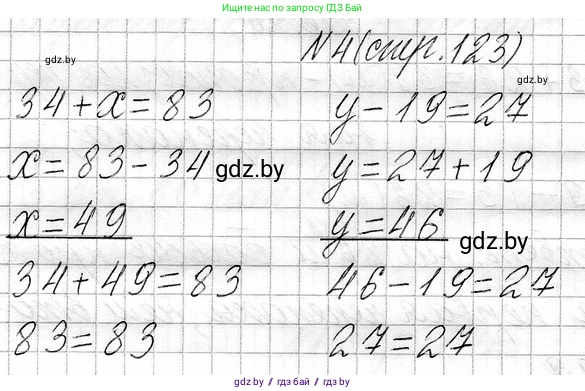 Ищите нас по запросу ГДЗ Бай
№4(стр.123)
gdz.by
gdz.by
34+x=83
x=83-34
x=49
34+49=83
83=83
gdz.by
y-19=27
y=27+19
y=46
46-19=27
27=27
gdz.by
gdz.by | гдз бай | gdzbai.by